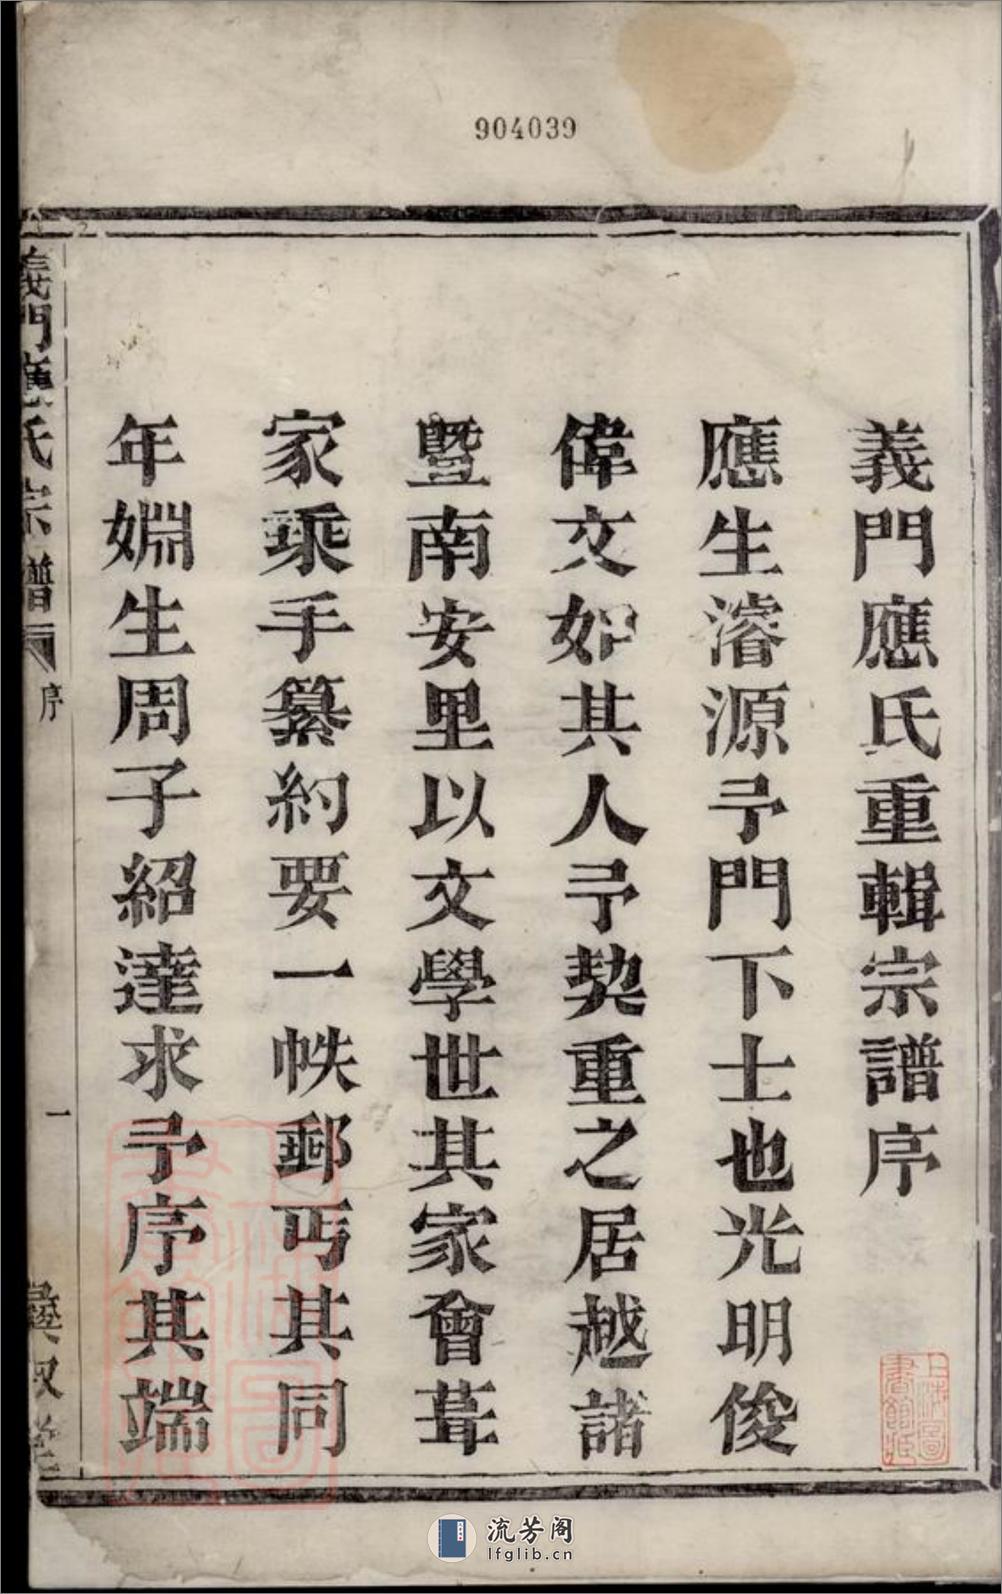 904039
義門應氏重輯宗譜序
應生濬源予門下士也光明俊
偉文如其人予契重之居越諸
暨南安里以文學世其家會葺
家乘手纂約要一帙郵丐其同
年婣生周子紹達求予序其端
義門應氏宗譜
序
一
彝敘堂
上海圖書館藏
流芳阁
lfglib.cn